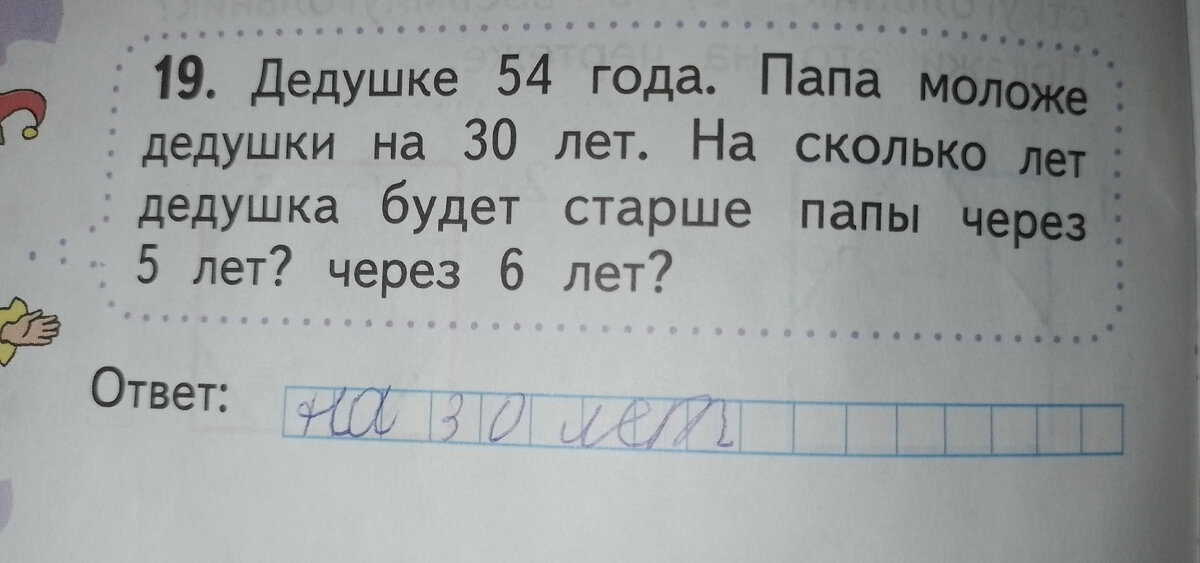 19. Дедушке 54 года. Папа моложе
дедушки на 30 лет. На сколько лет
дедушка будет старше папы через
5 лет? через 6 лет?
Ответ: на 30 лет